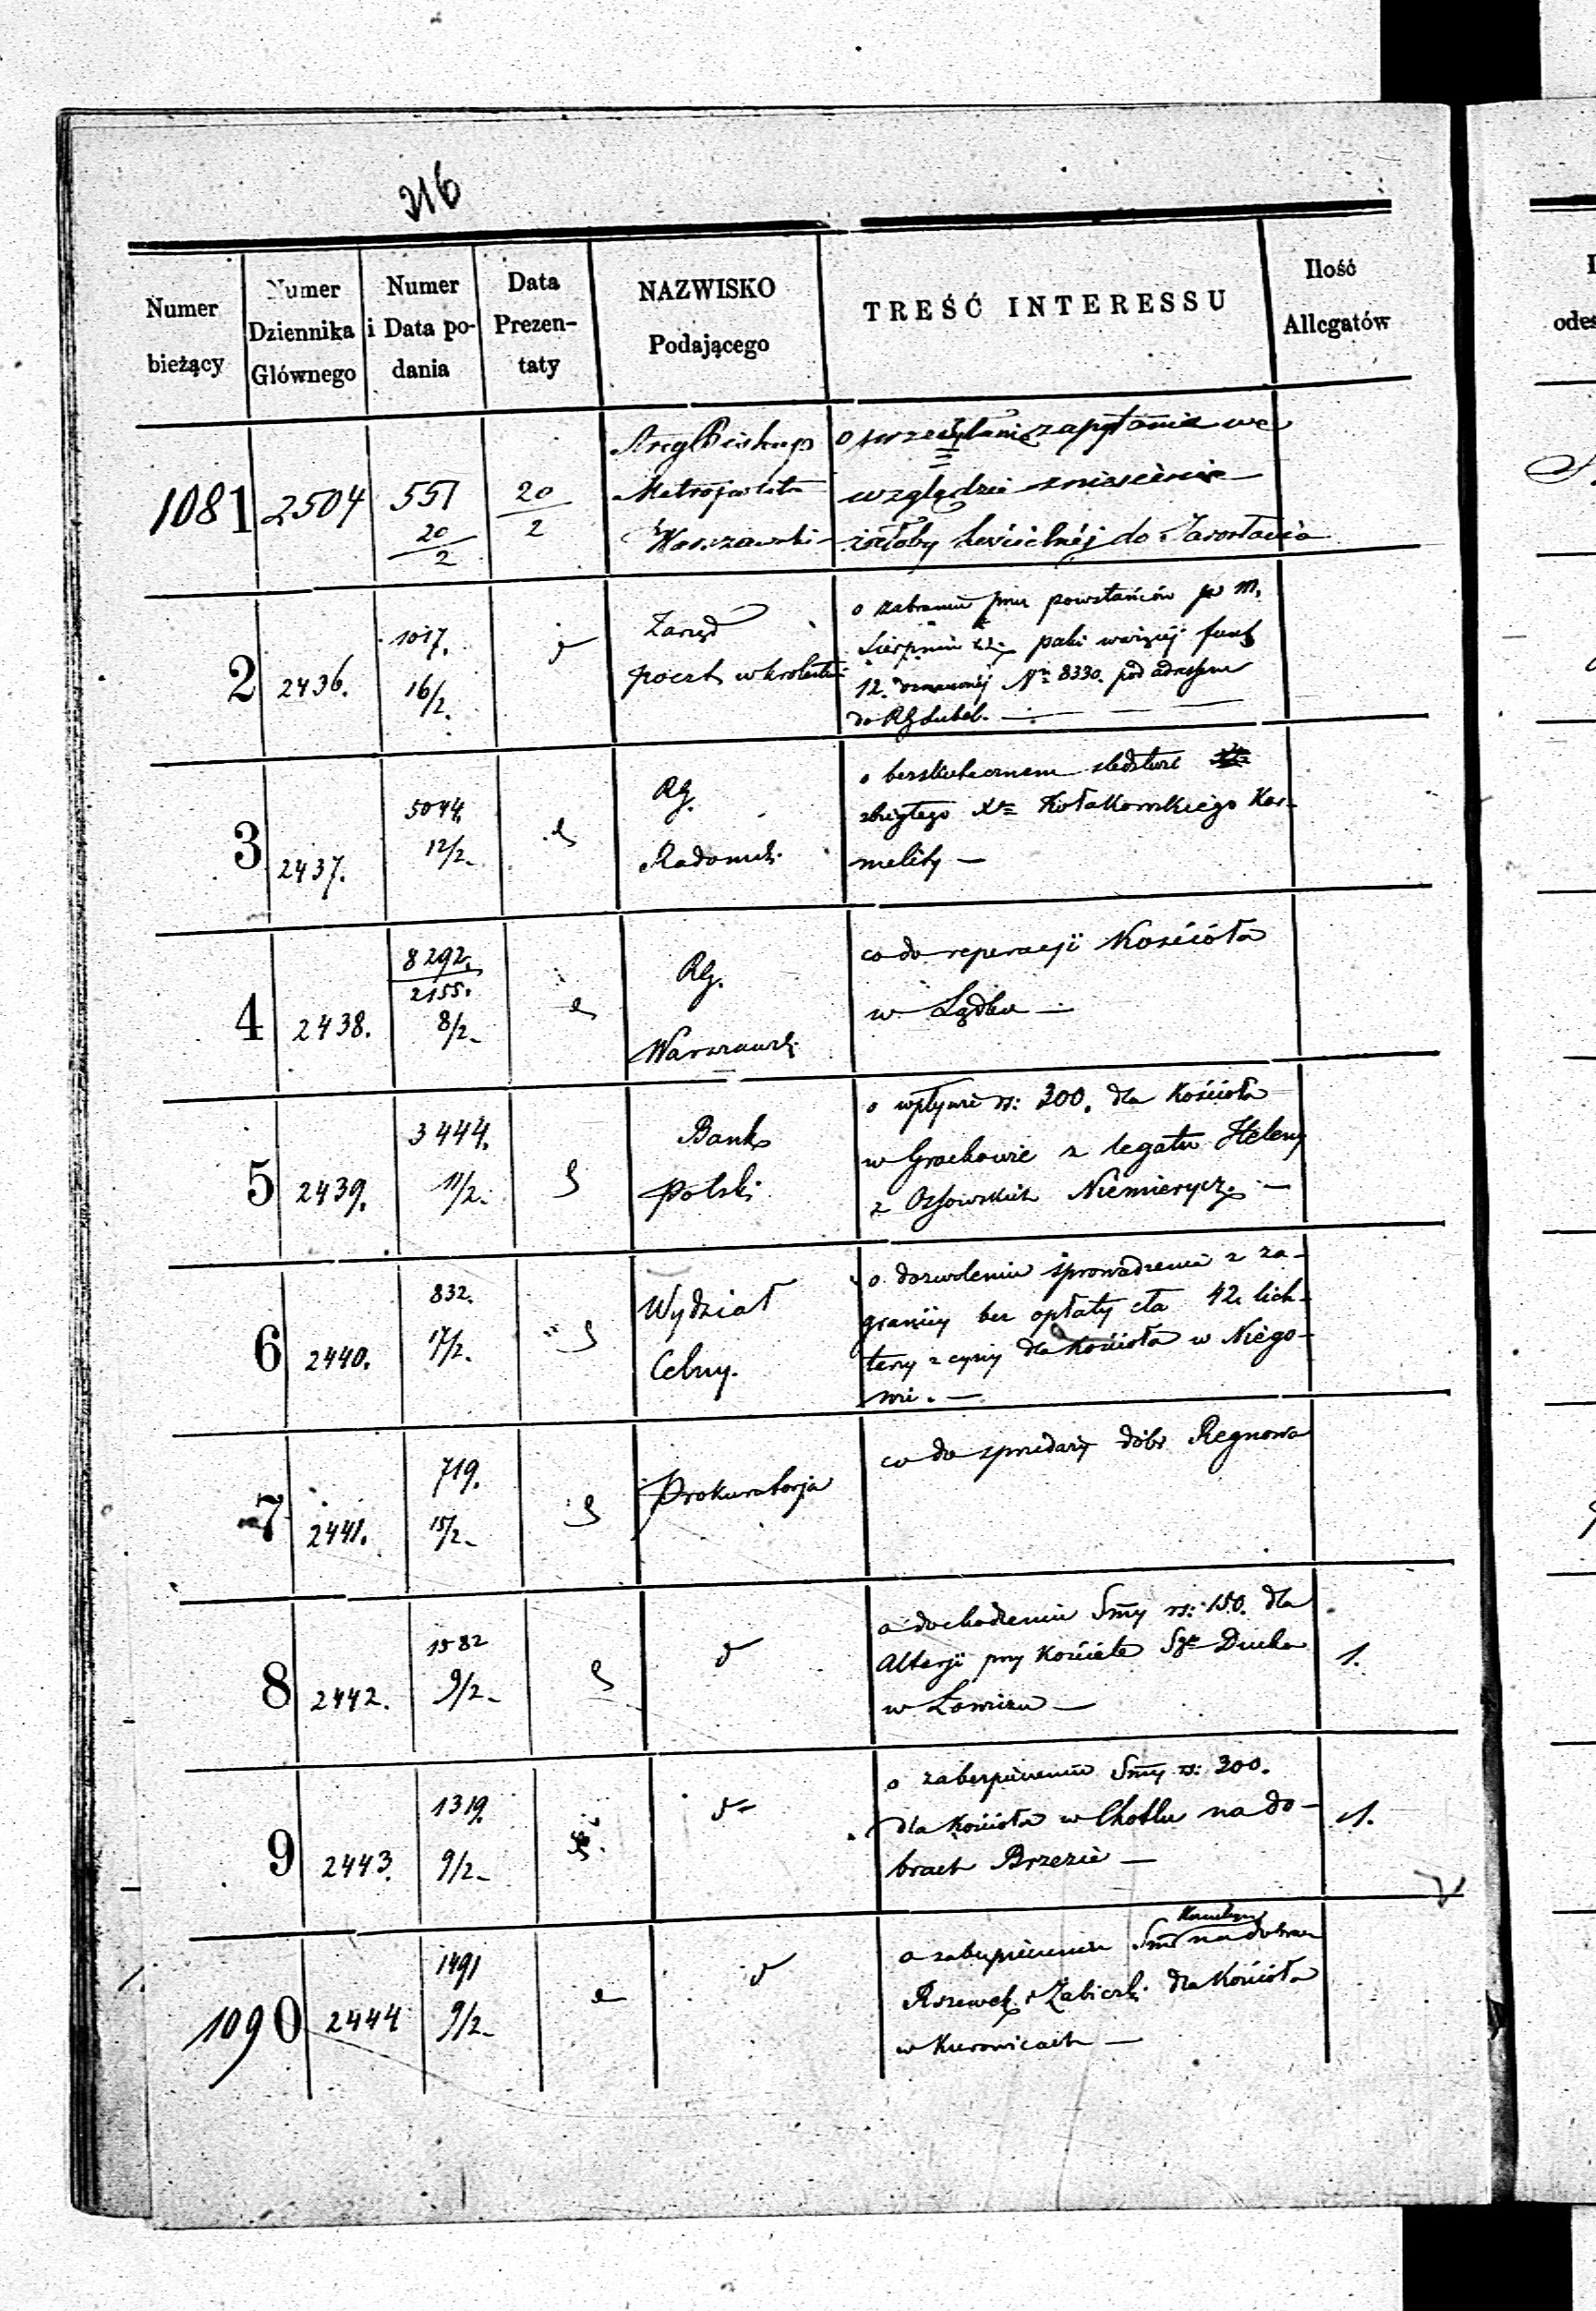 216
Numer bieżący
Numer Dziennika Głównego
Numer i Data podania
Data Prezentaty
NAZWISKO Podającego
TREŚĆ INTERESSU
Ilość Allegatów
1081 2504 551 20/2 20/2
Metropolita
Warszawski
o przesłanie zapytania we
względzie zniesienia
żałoby kościelnéj do Jarosławia
2 2436. 1017. 16/2.
Zarząd
poczt w Królestwie
o zabraniu przez powstańców w m.
Sierpniu paki ważącej funt
12. oznaczonej Nr 8330. pod adresem
do RG Lubel. —
3 2437. 5044. 12/2.
RG.
Radomsk.
o bezskutecznem śledztwie
zbiegłego Xa Kołakowskiego Kar-
melity —
4 2438. 8292. 2155. 8/2.
RG.
Warszawsk.
co do reperacji Kościoła
w Lądku —
5 2439. 3444. 11/2.
Bank
Polski
o wpływie rs: 300. dla Kościoła
w Grochowie z legatu Heleny
z Niemierycz. —
6 2440. 832. 17/2.
Wydział
Celny.
o dozwoleniu sprowadzenia z za-
granicy bez opłaty cła 42. lich-
tarzy z cyny dla Kościoła w Niego-
wie. —
7 2441. 719. 15/2.
Prokuratorja
co do sprzedaży dóbr Regnowa
8 2442. 1582 9/2.
o dochodzeniu Smy rs: 150. dla
Altarji przy Kościele Sgo Ducha
w Łowiczu —
1.
9 2443. 1319. 9/2.
o zabezpieczeniu Smy rs: 300.
dla Kościoła w Chotlu na do-
brach Brzezie —
1.
1090 2444 1491 9/2.
o zabezpieczeniu Sm na dobrach
dla Kościoła
w Kurowicach —